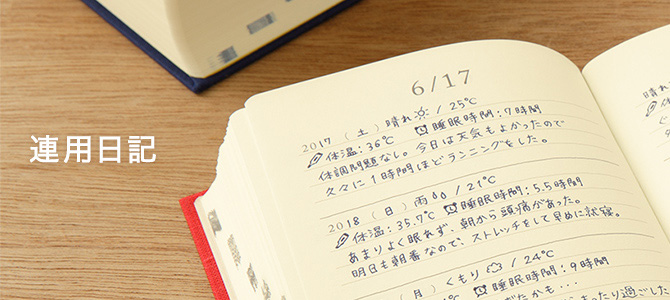 連用日記
6/17
2017 (土) 晴れ☀ / 25℃
体温:36℃ 睡眠時間:7時間
体調問題なし。今日は天気もよかったので
久々に1時間ほどランニングをした。
2018 (日) 雨 / 21℃
体温:35.7℃ 睡眠時間:5.5時間
あまりよく眠れず、朝から頭痛があった。
明日も朝番なので、ストレッチをして早めに就寝。
(月) くもり☁ / 24℃
睡眠時間:9時間
晴れ